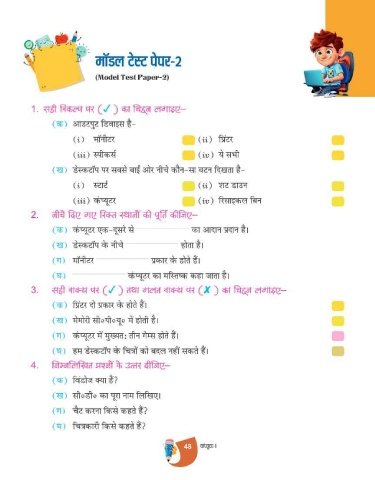 मॉडल टेस्ट पेपर-2
(Model Test Paper-2)
1. सही विकल्प पर ( ✓ ) का चिह्न लगाइए–
(क) आउटपुट डिवाइस है-
(i) मॉनीटर (ii) प्रिंटर
(iii) स्पीकर्स (iv) ये सभी
(ख) डेस्कटॉप पर सबसे बाईं ओर नीचे कौन-सा बटन दिखता है-
(i) स्टार्ट (ii) शट डाउन
(iii) कंप्यूटर (iv) रिसाइकल बिन
2. नीचे दिए गए रिक्त स्थानों की पूर्ति कीजिए–
(क) कंप्यूटर एक-दूसरे से का आदान प्रदान है।
(ख) डेस्कटॉप के नीचे होता है।
(ग) मॉनीटर प्रकार के होते हैं।
(घ) कंप्यूटर का मस्तिष्क कहा जाता है।
3. सही वाक्य पर ( ✓ ) तथा गलत वाक्य पर ( ✗ ) का चिह्न लगाइए–
(क) प्रिंटर दो प्रकार के होते हैं।
(ख) मेमोरी सी०पी०यू० में होती है।
(ग) कंप्यूटर में मुख्यत: तीन गेम्स होते हैं।
(घ) हम डेस्कटॉप के चित्रों को बदल नहीं सकते हैं।
4. निम्नलिखित प्रश्नों के उत्तर दीजिए–
(क) विंडोज क्या है?
(ख) सी०डी० का पूरा नाम लिखिए।
(ग) चैट करना किसे कहते हैं?
(घ) चित्रकारी किसे कहते हैं?
48